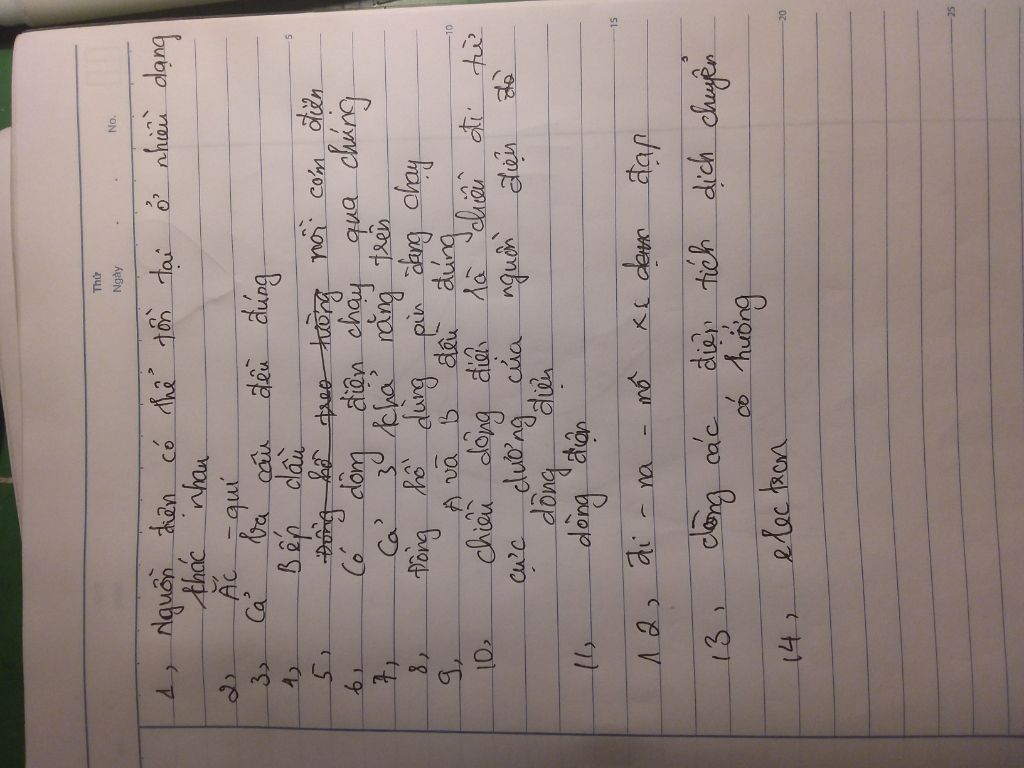 Thứ
Ngày
No.
1, Nguồn điện có thể tồn tại ở nhiều dạng
khác nhau
2, Ắc - qui
3, Cả ba câu đều đúng
4, Bếp dầu
5, Đồng hồ treo tường nồi cơm điện
6, Có dòng điện chạy qua chúng
7, Cả 3 khả năng trên
8, Đồng hồ dùng pin đang chạy
9, A và B đều đúng
10, chiều dòng điện là chiều đi từ
cực dương của nguồn điện
dòng điện
11, dòng điện
12, đi - na - mô xe đạp
13, dòng các điện tích dịch chuyển
có hướng
14, electron
5
10
15
20
25